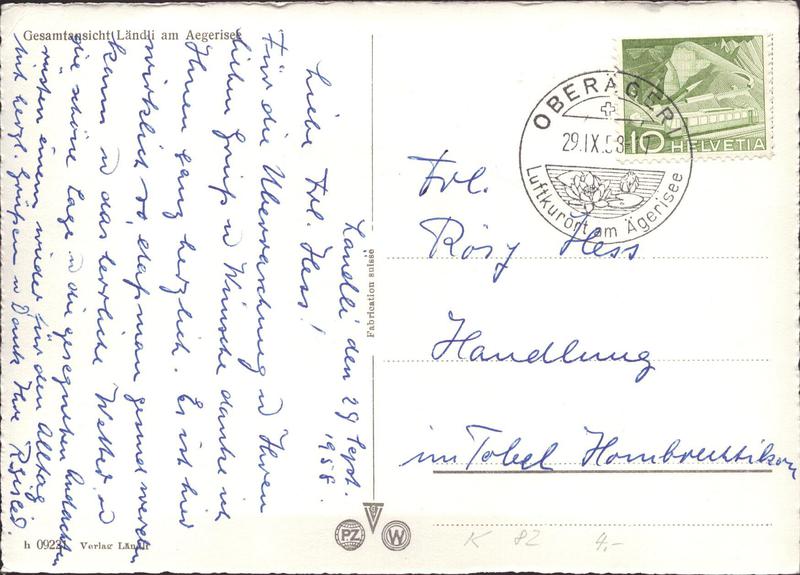 Gesamtansicht Ländli am Aegerisee
Ländli den 29 Sept.
1958.
Liebe Frl. Hess!
Für die Überraschung u Ihren
lieben Gruß u Wünsche danke ich
Ihnen ganz herzlich. Es ist hier
wirklich so, daß man gesund werden
kann u das herrliche Wetter u
die schöne Lage u die gesegneten Andachten
rüsten einem wieder für den Alltag
Mit herzl. Grüßen u Dank Ihre
h 09221 Verlag Ländli
Fabrication suisse
PZ
W
OBERÄGERI
29.IX.58-17
Luftkurort am Ägerisee
10 HELVETIA
Frl.
Rösy Hess
Handlung
im Tobel Hombrechtikon
K 82 4.-